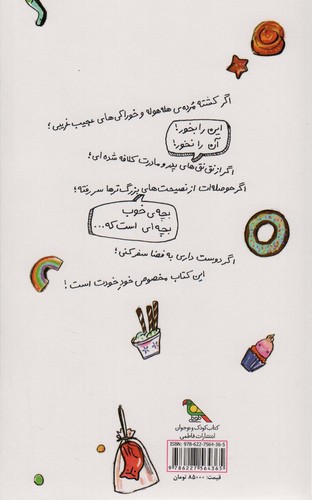 اگر کشته مُرده‌ی هله‌هوله و خوراکی‌های عجیب غریبی؛
این را بخور!
آن را نخور!
اگر از نق‌نق‌های پدر و مادرت کلافه شده‌ای؛
اگر حوصله‌ات از نصیحت‌های بزرگ‌ترها سر رفته؛
بچه‌ی خوب
بچه‌ای است که...
اگر دوست داری به فضا سفر کنی؛
این کتاب مخصوص خودِ خودت است!
کتاب کودک و نوجوان
انتشارات فاطمی
ISBN: 978-622-7564-36-5
9786227564365
قیمت: ۸۵۰۰۰ تومان